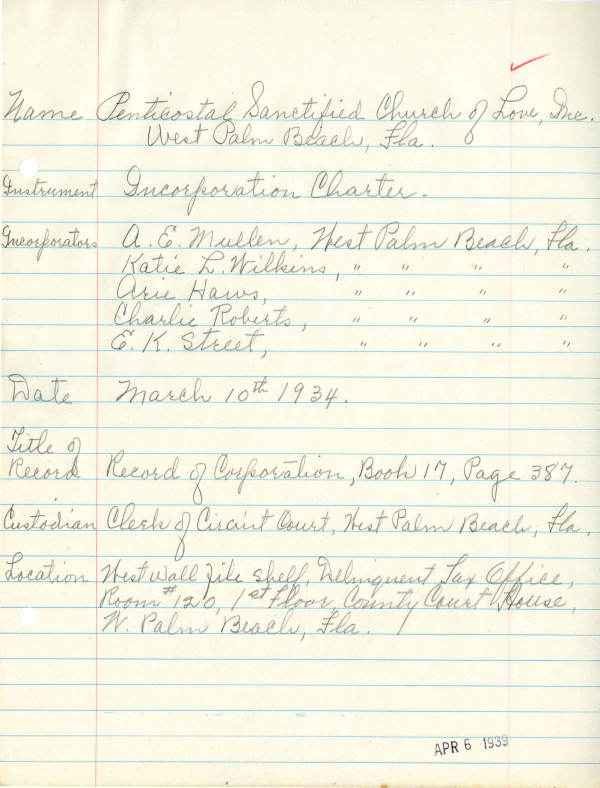 Name Penticostal Sanctified Church of Love, Inc.
West Palm Beach, Fla.
Instrument Incorporation Charter.
Incorporators A. E. Mullen, West Palm Beach, Fla.
Katie L. Wilkins, " " " "
Arie Haws, " " " "
Charlie Roberts, " " " "
E. K. Street, " " " "
Date March 10th 1934.
Title of
Record Record of Corporation, Book 17, Page 387.
Custodian Clerk of Circuit Court, West Palm Beach, Fla.
Location West wall file shelf, Delinquent Tax Office,
Room #120, 1st Floor, County Court House,
W. Palm Beach, Fla.
APR 6 1939